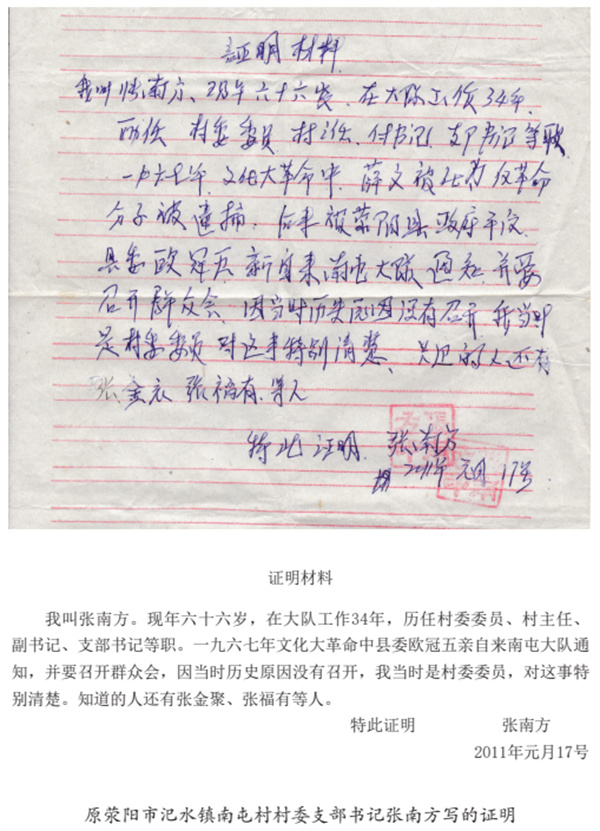 证明材料
我叫张南方、现年六十六岁、在大队工作34年.
历任 村委委员 村主任、付书记、支部书记等职.
一九六七年 文化大革命中. 薛文被批为反革命
分子被逮捕. 后来被荥阳县政府平反.
县委欧冠五 亲自来南屯大队通知 并要
召开群众会、因当时历史原因没有召开 我当时
是村委委员 对这事特别清楚、知道的人还有
张金聚 张福有.等人
特此证明. 张南方
2011年元月17号
证明材料
我叫张南方。现年六十六岁，在大队工作34年，历任村委委员、村主任、
副书记、支部书记等职。一九六七年文化大革命中县委欧冠五亲自来南屯大队通
知，并要召开群众会，因当时历史原因没有召开，我当时是村委委员，对这事特
别清楚。知道的人还有张金聚、张福有等人。
特此证明 张南方
2011年元月17号
原荥阳市汜水镇南屯村村委支部书记张南方写的证明